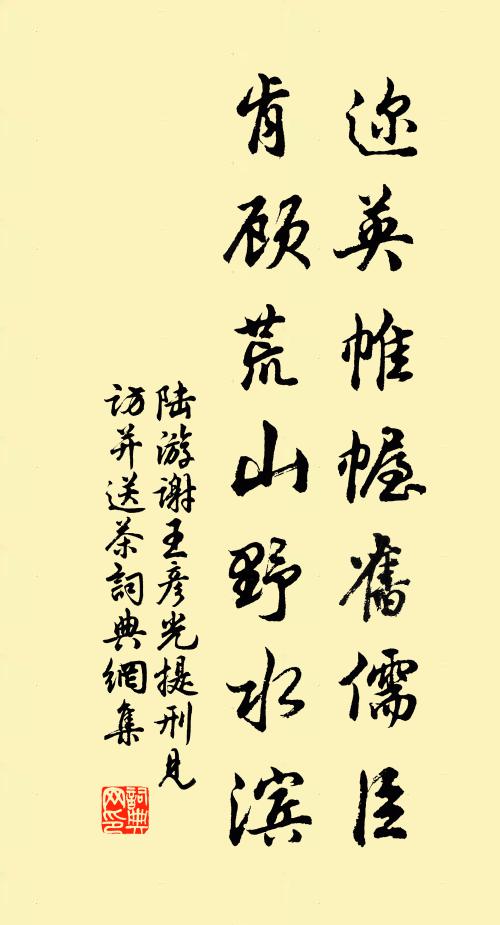 迩英帷幄舊儒臣
肯顾荒山野水滨
陆游谢王彦光提刑見
访并送茶詞典網集
詞典網印